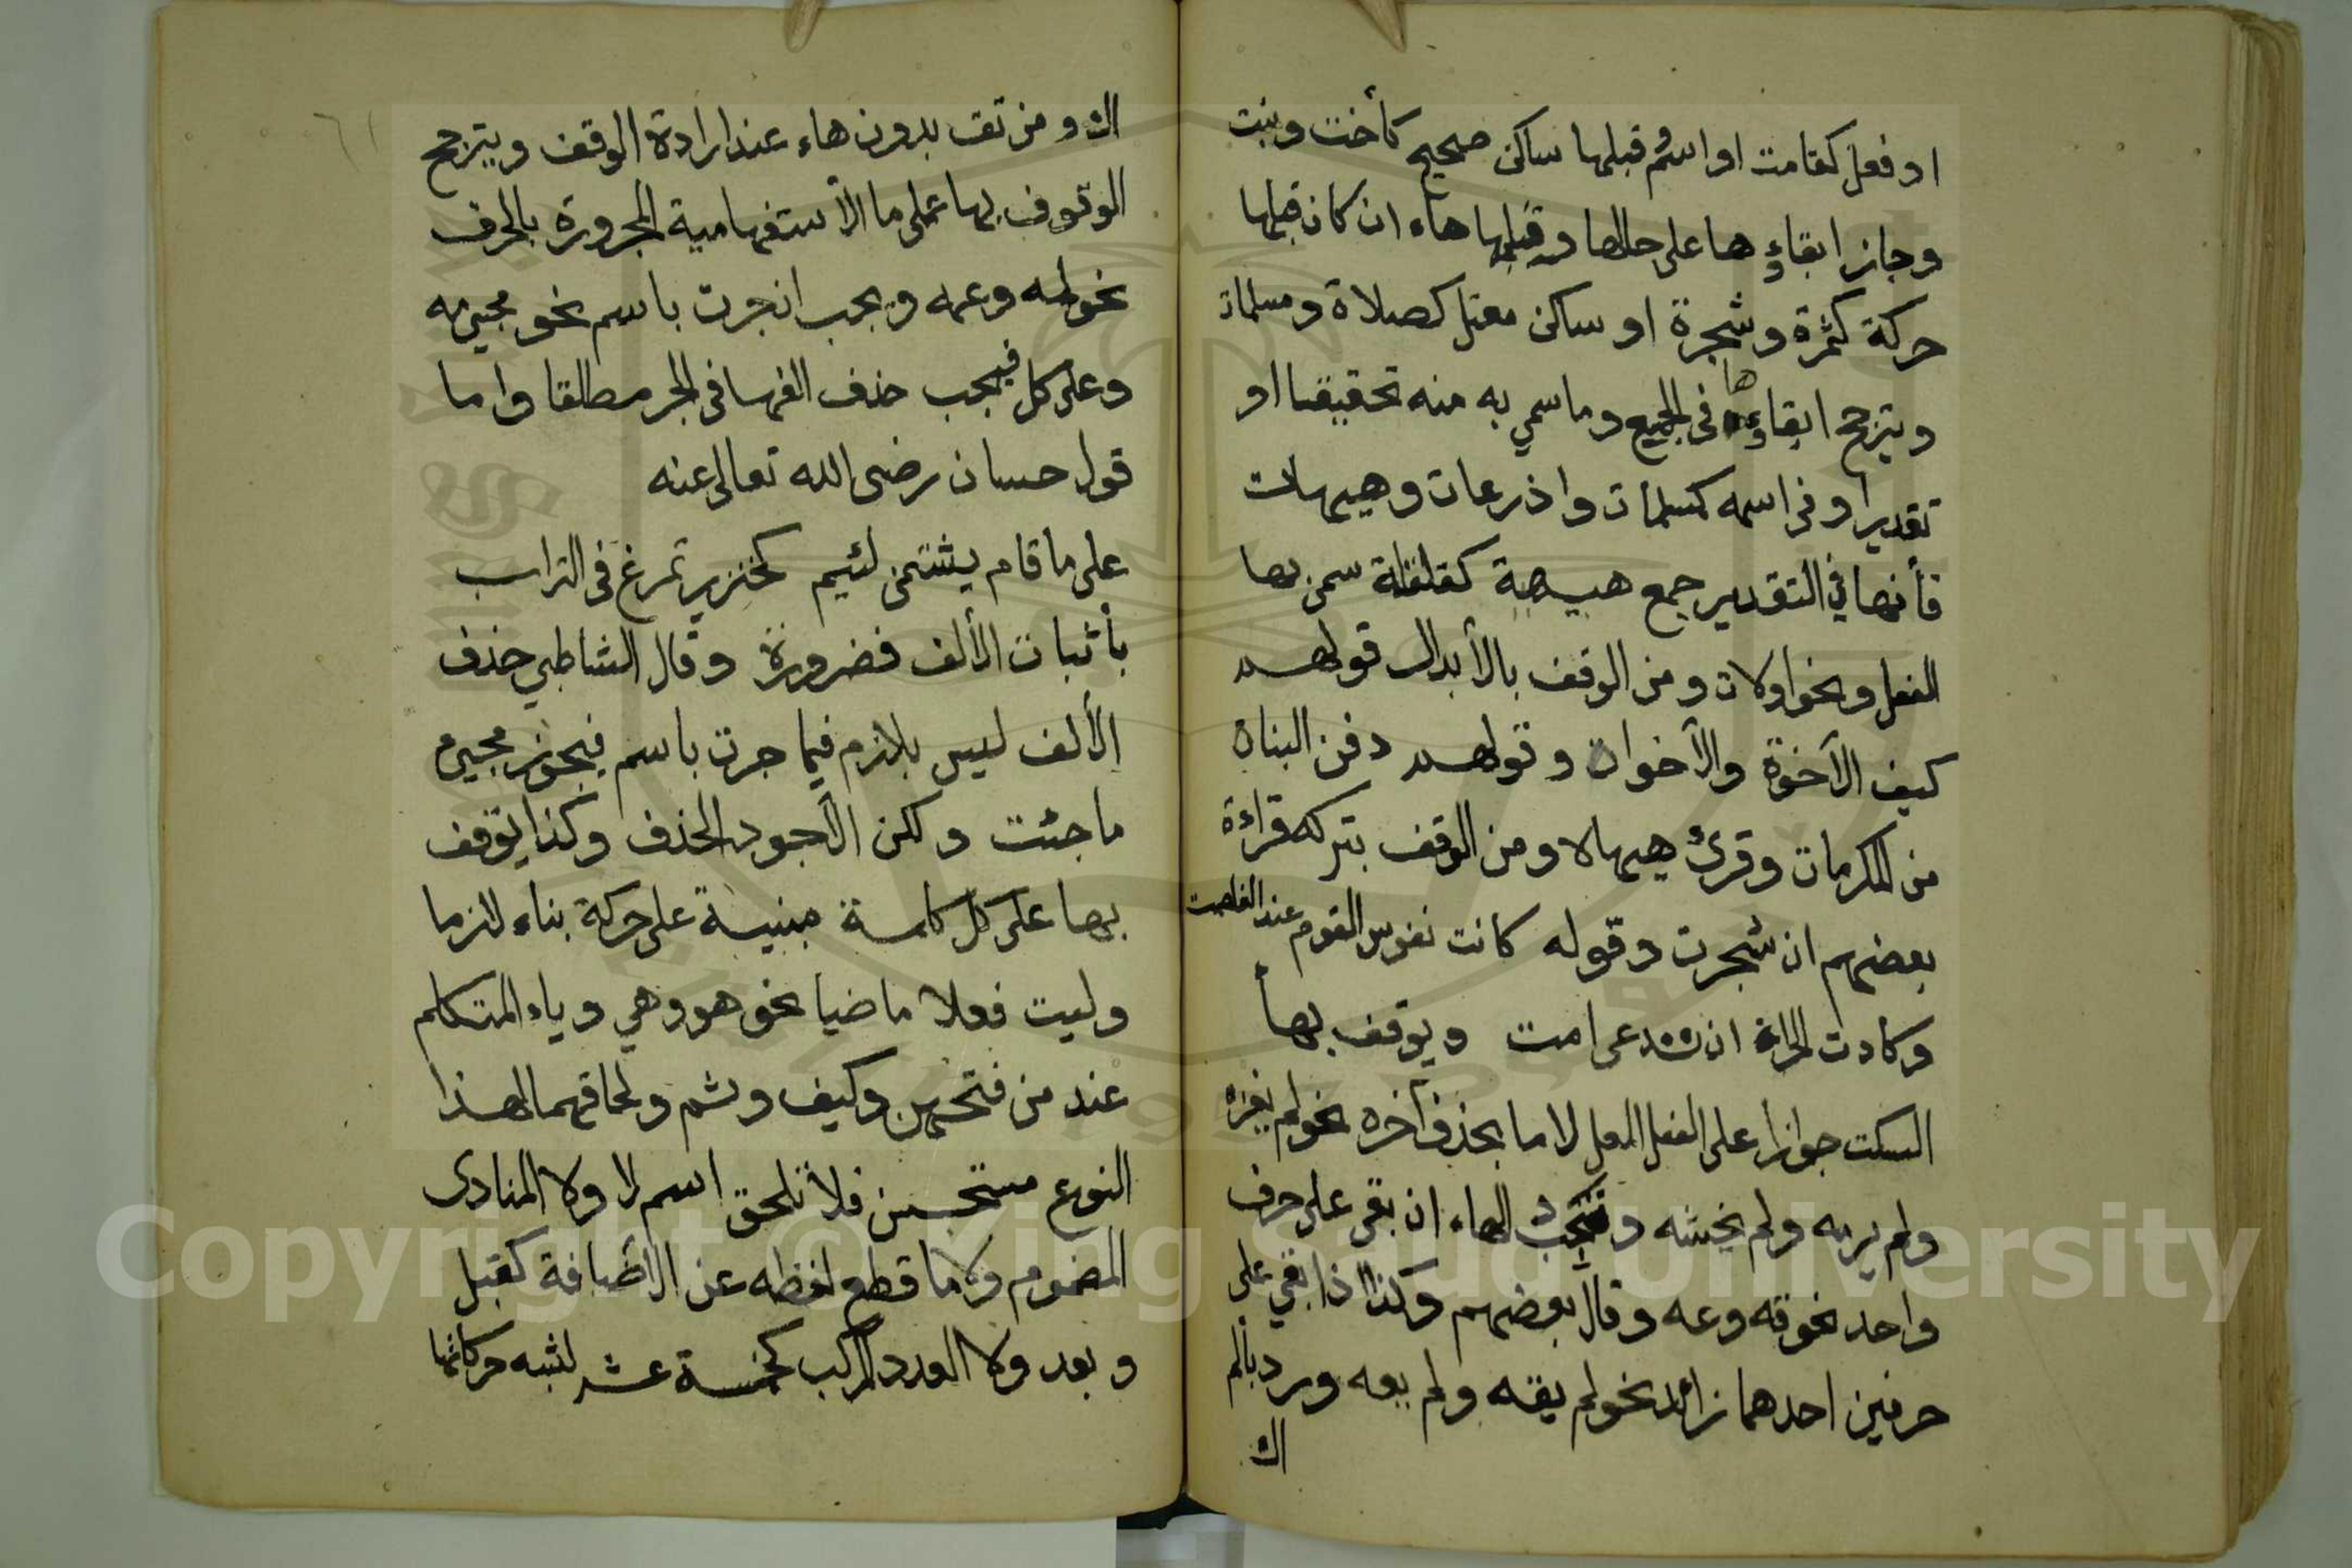 او فعل كقامت او اسم وقبلها ساكن صحيح كأخت وبنت
وجاز ابقاؤها على حالها وقلبها هاء ان كان قبلها
حركة كثمرة وشجرة او ساكن معتل كصلاة ومسلمات
ويترجح ابقاؤها في الجميع وما سمي به منه تحقيقا او
تقديرا وفى اسمه كمسلمات واذرعات وهيهات
فأنها في التقدير جمع هيهة كقلقلة سمى بها
الفعل ونحو اولات ومن الوقف بالأبدال قولهم
كيف الأخوة والأخواه وقولهم دفن البناه
من المكرمات وقرئ هيهاه ومن الوقف بتركه قراءة
بعضهم ان شجرت وقوله كانت نفوس القوم عند الغلصمت
وكادت الحرة ان تدعى امت ويوقف بهأ
السكت جوازا على الفعل المعل لاما بحذف آخره نحو لم يغزه
ولم يرمه ولم يخشه وتجب الهاء ان بقى على حرف
واحد نحو قه وعه وقال بعضهم وكذا اذا بقي على
حرفين احدهما زائد نحو لم يقه ولم يعه ورد بألم
اك
اك ومن تق بدون هاء عند ارادة الوقف ويترجح
الوقوف بها على ما الأستفهامية المجرورة بالحرف
نحو لمه وعمه ويجب ان جرت باسم نحو مجيء مه
وعلى كل فيجب حذف الفها فى الجر مطلقا واما
قول حسان رضى الله تعالى عنه
على ما قام يشتمنى لئيم كخنزير تمرغ فى التراب
بأثبات الألف فضرورة وقال الشاطبي حذف
الألف ليس بلازم فيما جرت باسم فيجوز مجيء
ما جئت ولكن الأجود الحذف وكذا يوقف
بها على كل كلمة مبنية على حركة بناء لازما
وليت فعلا ماضيا نحو هو وهي وياء المتكلم
عند من فتحهن وكيف وثم ولحاقها لهذا
النوع مستحسن فلا تلحق اسم لا ولا المنادى
المضموم ولا ما قطع لفظه عن الأضافة كقبل
وبعد ولا العدد المركب كخمسة عشر لشبه حركاتها
Copyright © King Saud University